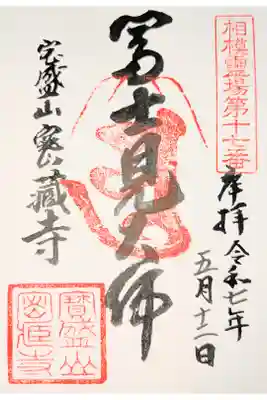 相模霊場第十七番
奉拝 令和七年
五月十二日
富士見大師
宝盛山 密蔵寺
寳盛山
密蔵寺